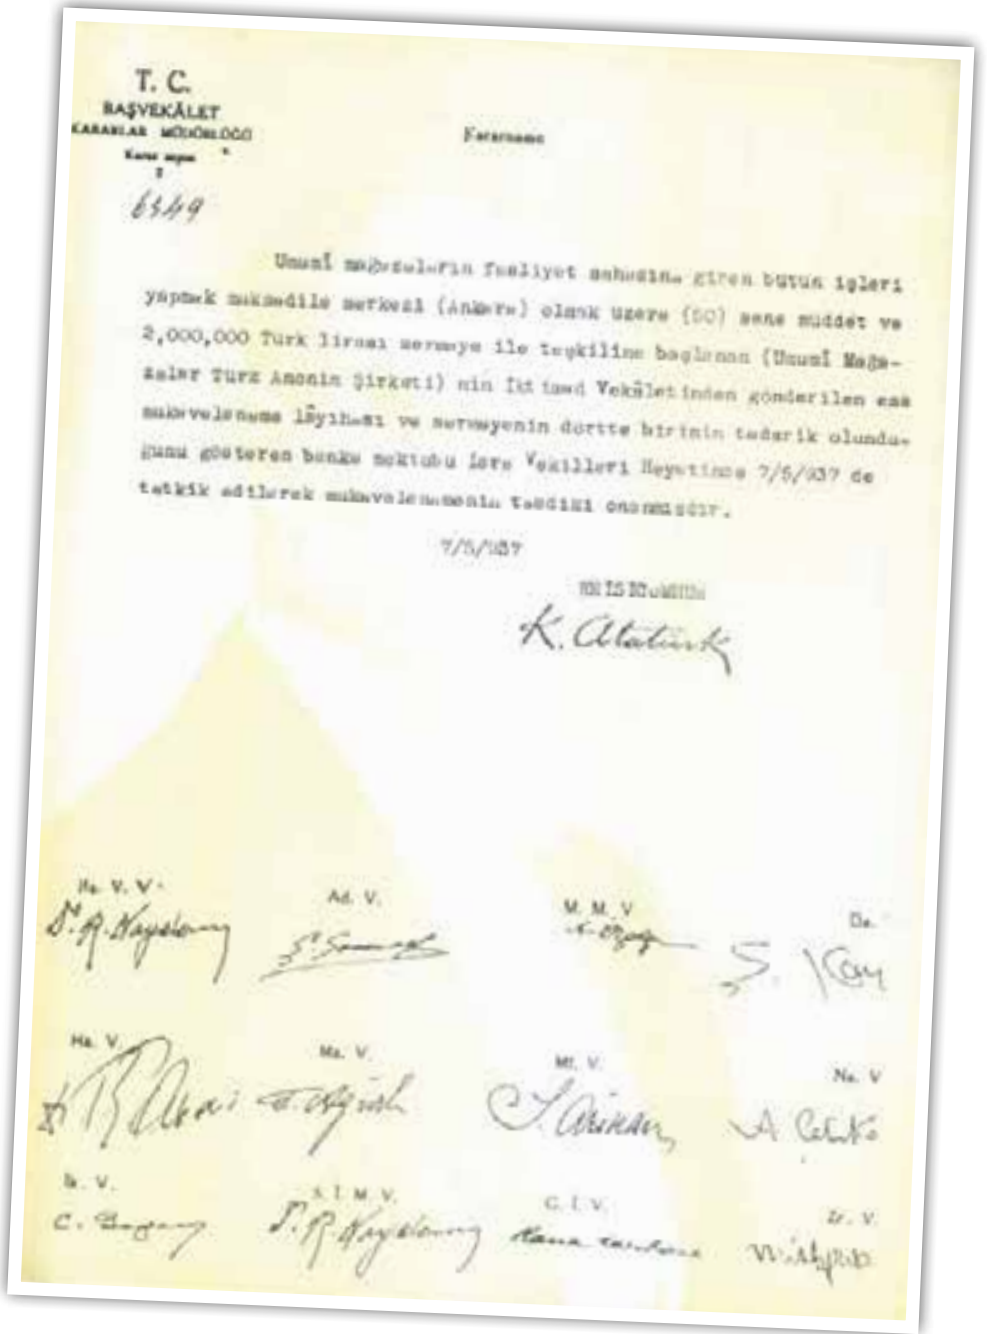 T. C.
BAŞVEKÂLET
KARARLAR MÜDÜRLÜĞÜ
Karar sayısı
2
6549
Kararname
Umumî mağazaların faaliyet sahasına giren bütün işleri
yapmak maksadile merkezi (Ankara) olmak üzere (50) sene müddet ve
2,000,000 Türk lirası sermaye ile teşkiline başlanan (Umumî Mağa-
zalar Türk Anonim Şirketi) nin İktisad Vekâletinden gönderilen esas
mukavelename lâyihası ve sermayenin dörtte birinin tedarik olundu-
ğunu gösteren banka mektubu İcra Vekilleri Heyetince 7/5/937 de
tetkik edilerek mukavelenamenin tasdiki onanmıştır.
7/5/937
REİSİCUMHUR
K. Atatürk
Ba. V. V.
Ad. V.
M. M. V
Da.
Dr. R. Saydam
Ş. Kaya
Ha. V.
Ma. V.
Mf. V.
Na. V
F. Ağralı
S. Arıkan
A. Çetinka
İk. V.
S. İ. M. V.
G. İ. V.
Zr. V.
C. Bayar
Dr. R. Saydam
Rana Tarhan